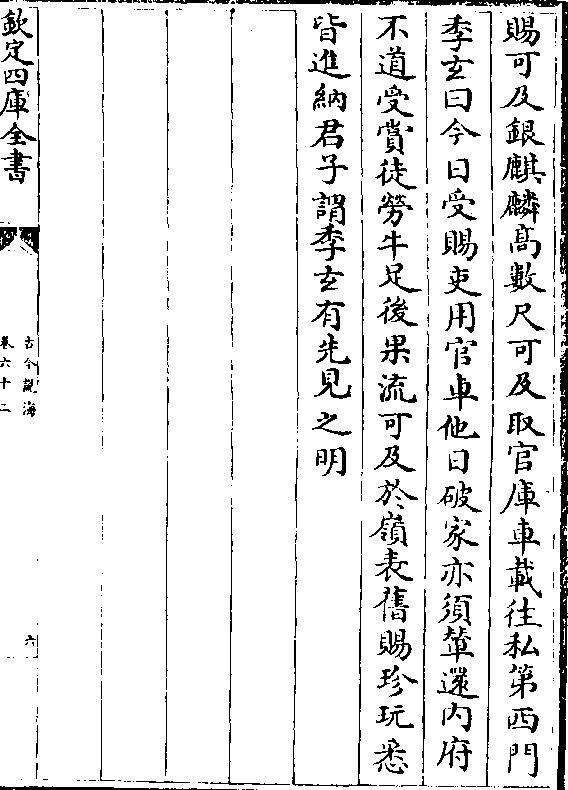 賜可及銀麒麟高數尺可及取官庫車載往私第西門
季玄曰今日受賜更用官車他日破家亦須輦還内府
不道受賞徒勞牛足後果流可及於嶺表舊賜珍玩悉
皆進納君子謂季玄有先見之明
欽定四庫全書
古今說海
卷六十二
六